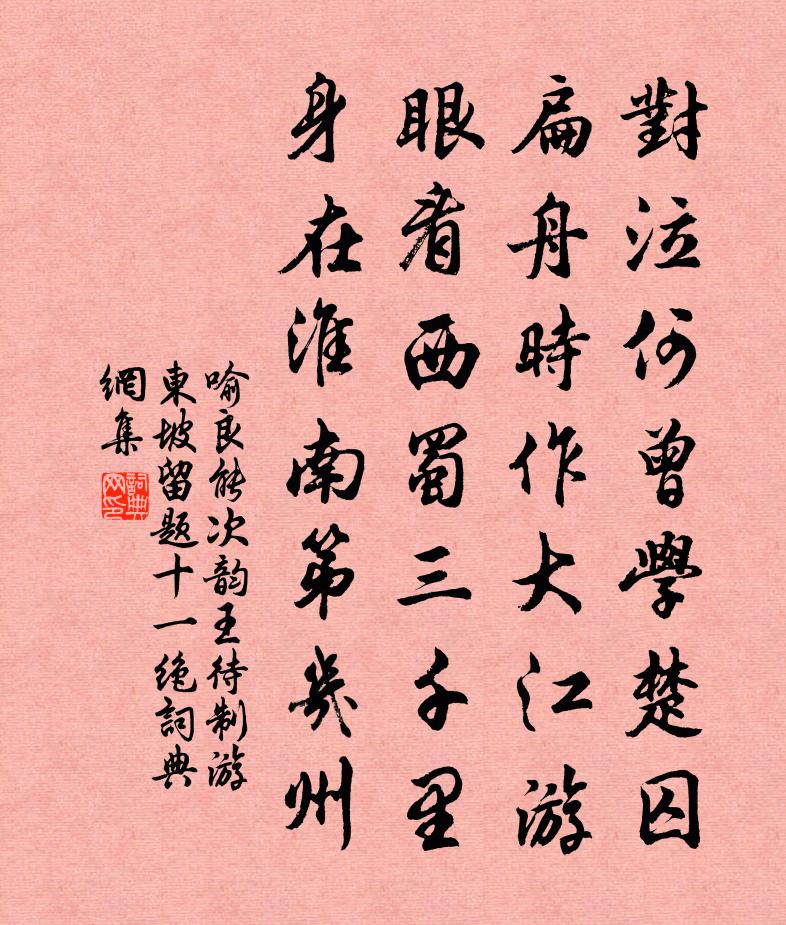 對泣何曾學楚囚
扁舟時作大江游
眼看西蜀三千里
身在淮南第幾州
喻良能次韵王待制游
東坡留題十一絶詞典
網集
詞典
网印